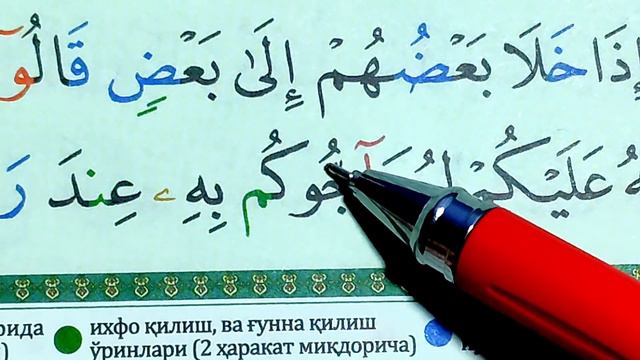 إِذَا خَلَا بَعْضُهُمْ إِلَىٰ بَعْضٍ قَالُوٓ
عَلَيْكُمْ لِيُحَآجُّوكُم بِهِۦ عِندَ رَ
ихфо қилиш, ва ғунна қилиш
ўринлари (2 ҳаракат миқдорича)